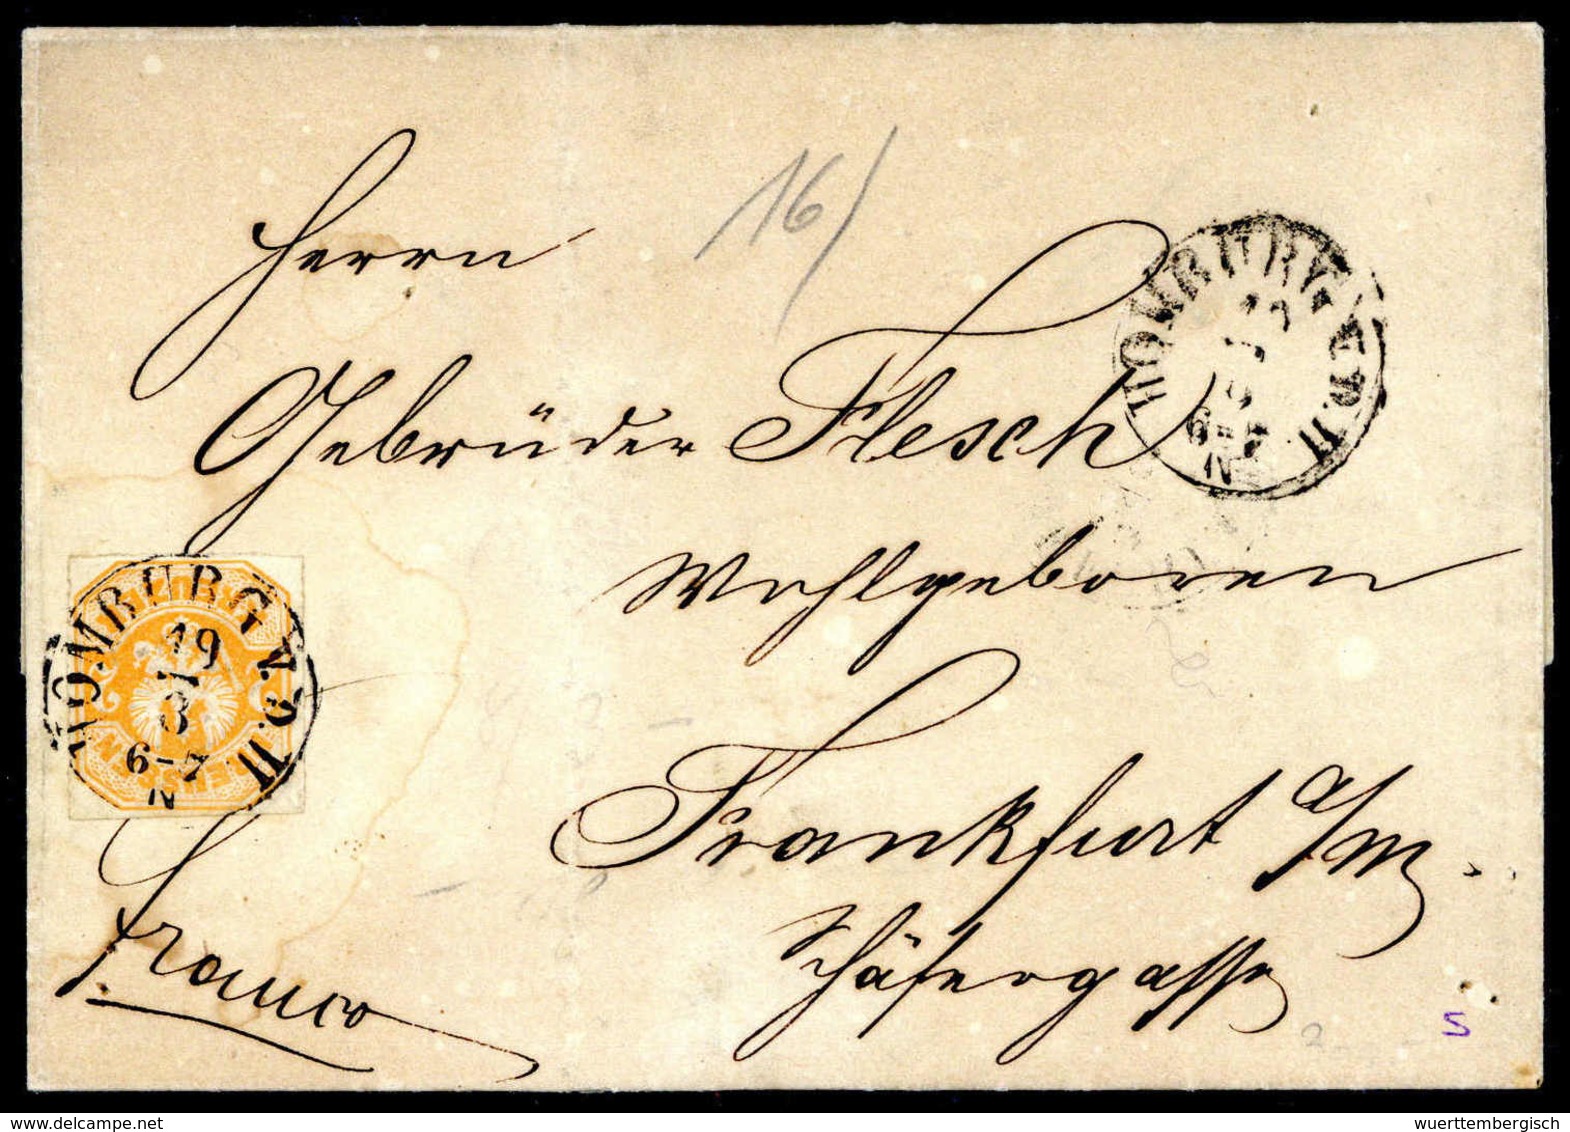 16/
Herrn
Gebrüder Flesch
Wohlgeboren
Frankfurt a/M.
Schäfergasse
franco
HOMBURG V.D.H.
19
8
6-7
N
HOMBURG V.D.H.
19
8
6-7
N
PREUSSEN
5
wuerttembergisch